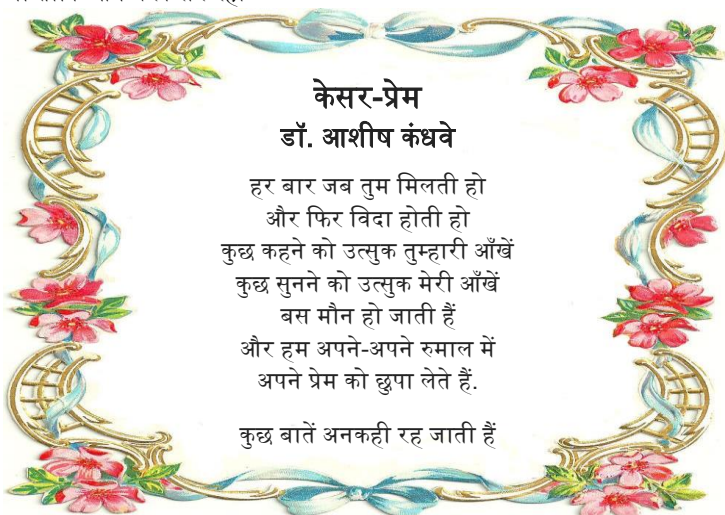 केसर-प्रेम
डॉ. आशीष कंधवे
हर बार जब तुम मिलती हो
और फिर विदा होती हो
कुछ कहने को उत्सुक तुम्हारी आँखें
कुछ सुनने को उत्सुक मेरी आँखें
बस मौन हो जाती हैं
और हम अपने-अपने रुमाल में
अपने प्रेम को छुपा लेते हैं.
कुछ बातें अनकही रह जाती हैं